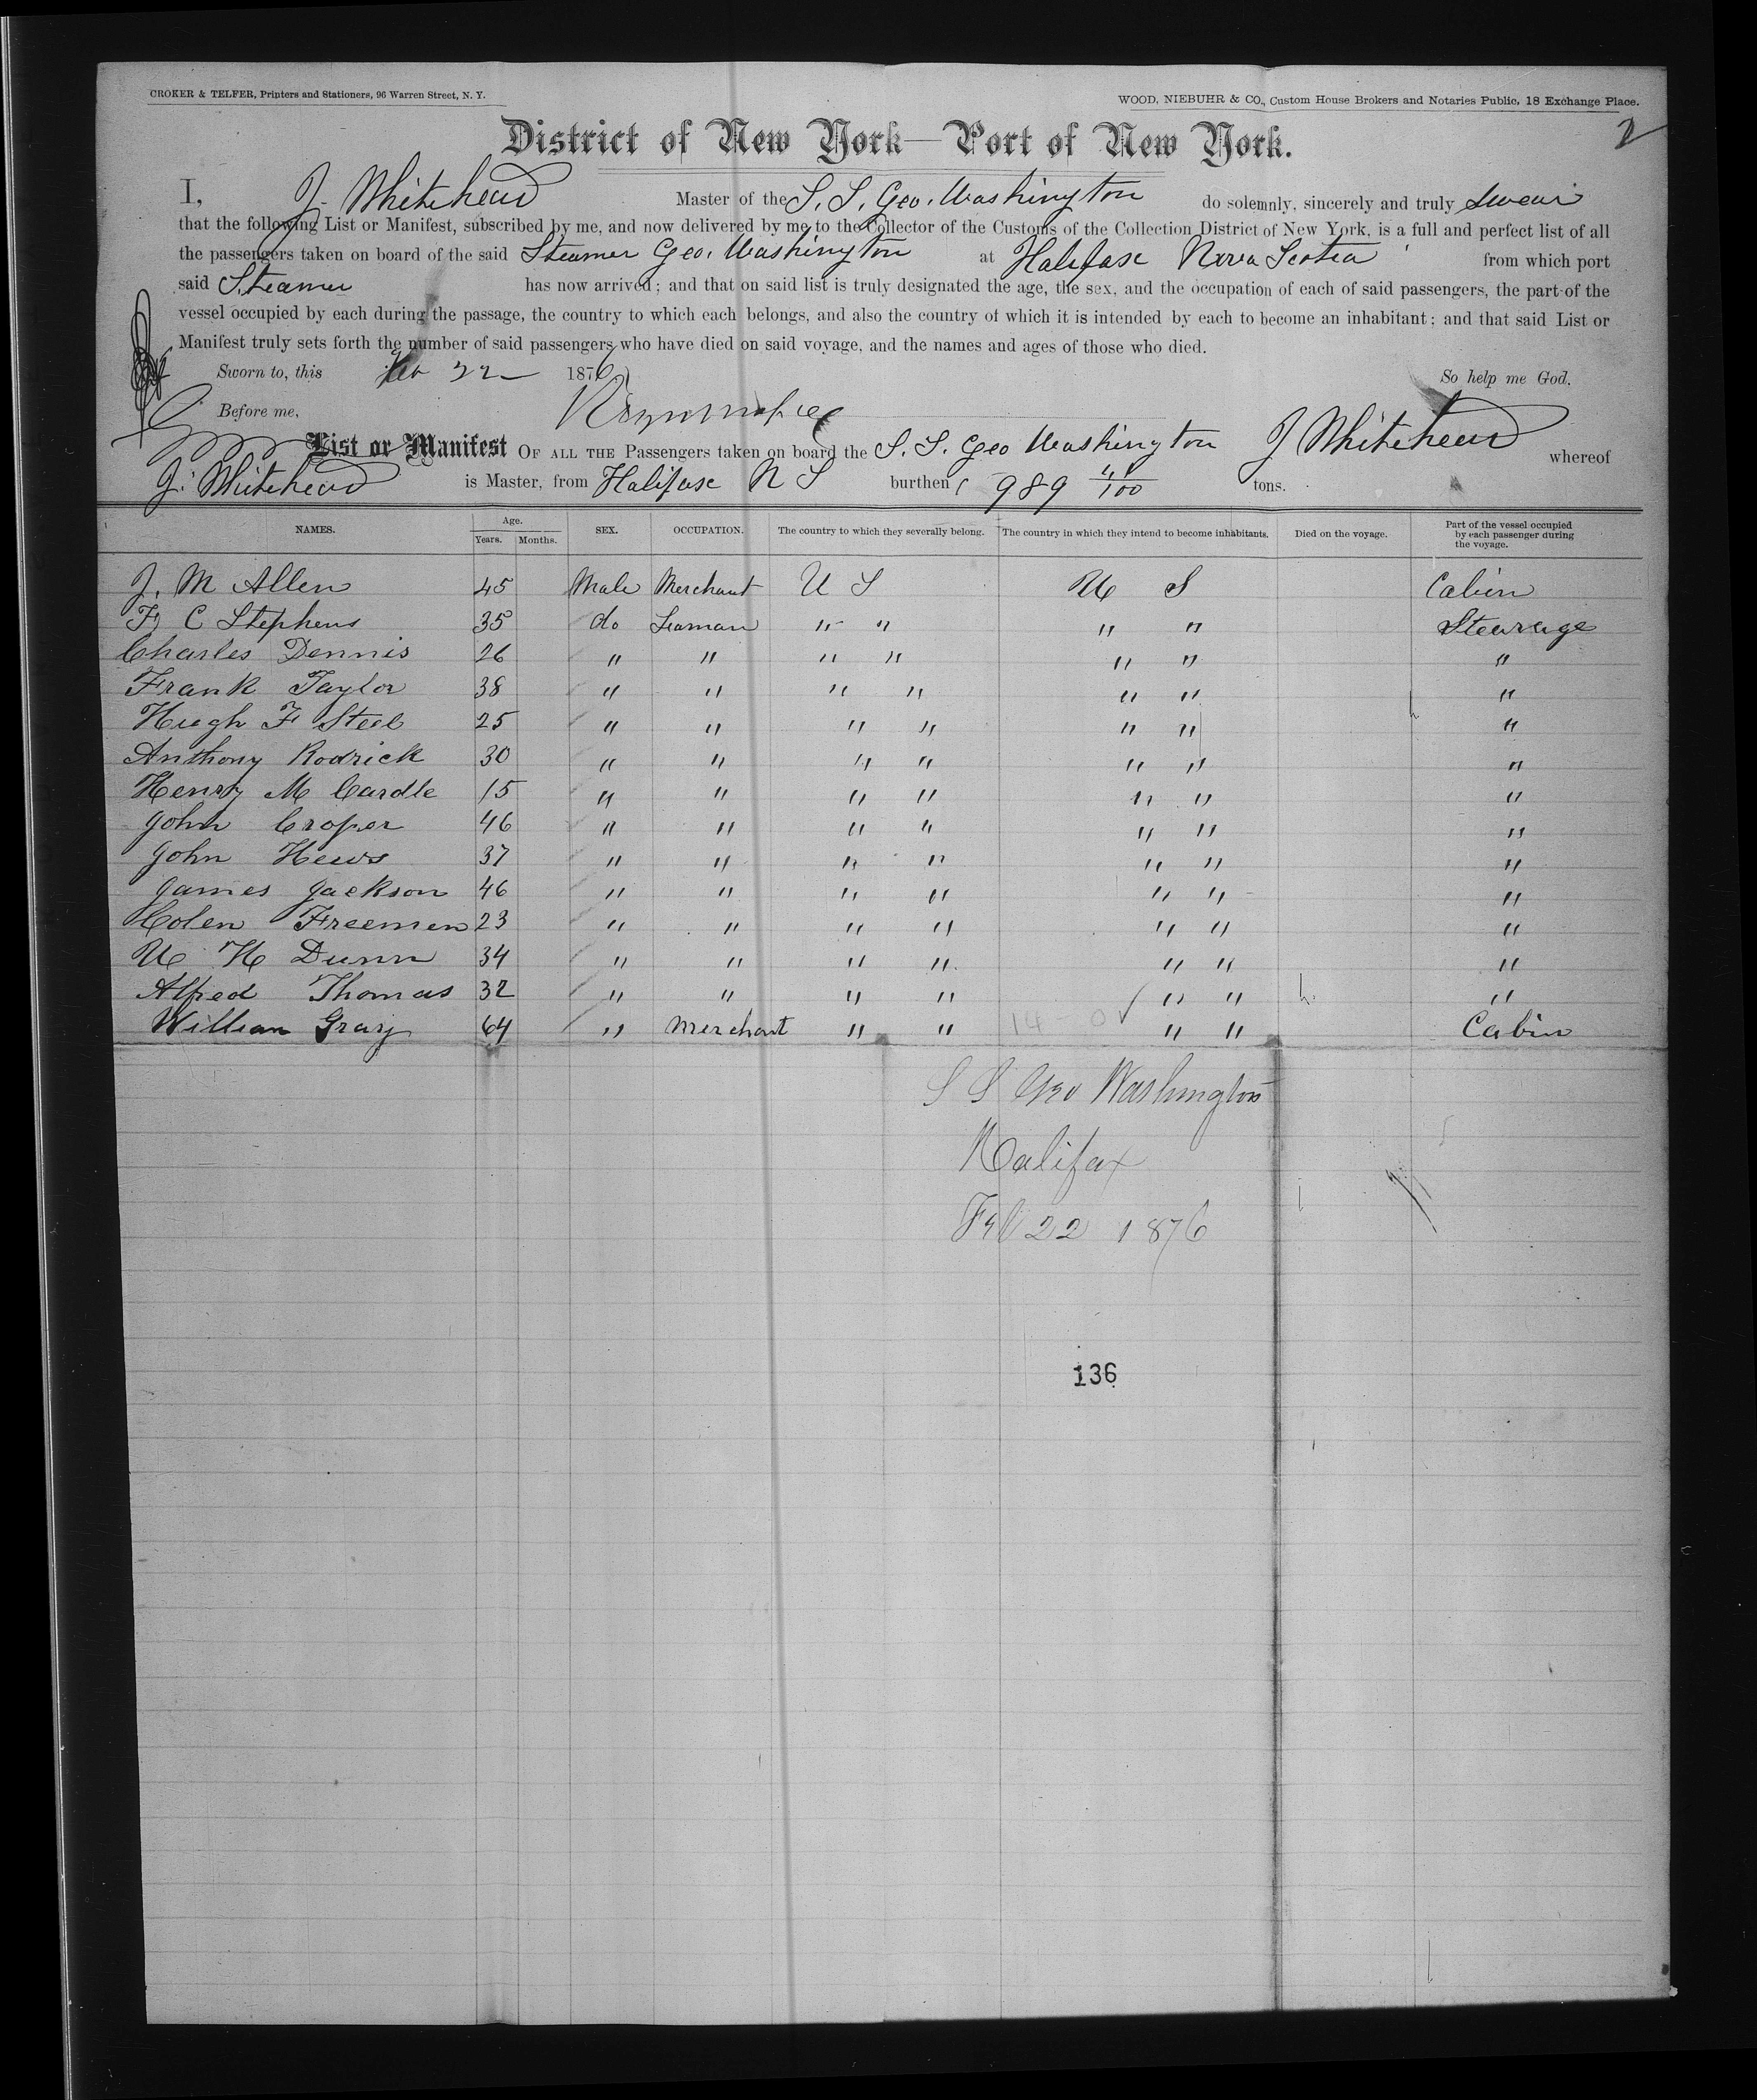 CROKER & TELFER, Printers and Stationers, 96 Warren Street, N. Y.
WOOD, NIEBUHR & CO., Custom House Brokers and Notaries Public, 18 Exchange Place.
2
District of New York—Port of New York.
I, J. Whitehead Master of the S. S. Geo. Washington do solemnly, sincerely and truly swear
that the following List or Manifest, subscribed by me, and now delivered by me to the Collector of the Customs of the Collection District of New York, is a full and perfect list of all
the passengers taken on board of the said Steamer Geo. Washington at Halifax Nova Scotia from which port
said Steamer has now arrived; and that on said list is truly designated the age, the sex, and the occupation of each of said passengers, the part of the
vessel occupied by each during the passage, the country to which each belongs, and also the country of which it is intended by each to become an inhabitant; and that said List or
Manifest truly sets forth the number of said passengers who have died on said voyage, and the names and ages of those who died.
Sworn to, this Feb 22 1876 So help me God.
Before me,
List or Manifest OF ALL THE Passengers taken on board the S. S. Geo Washington J Whitehead whereof
J. Whitehead is Master, from Halifax N S burthen 989 41/100 tons.
NAMES. Age. Years. Months. SEX. OCCUPATION. The country to which they severally belong. The country in which they intend to become inhabitants. Died on the voyage. Part of the vessel occupied by each passenger during the voyage.
J. M Allen 45 Male Merchant U S U S Cabin
F C Stephens 35 do Seaman " " " " Stearage
Charles Dennis 26 " " " " " " "
Frank Taylor 38 " " " " " " "
Hugh F Steel 25 " " " " " " "
Anthony Rodrick 30 " " " " " " "
Henry M Cardle 15 " " " " " " "
John Croper 46 " " " " " " "
John Hews 37 " " " " " " "
James Jackson 46 " " " " " " "
Colen Freemen 23 " " " " " " "
U H Dunn 34 " " " " " " "
Alfred Thomas 32 " " " " " " "
William Gray 64 " Merchant " " 14 0 " " Cabin
S S Geo Washington
Halifax
Feb 22 1876
136